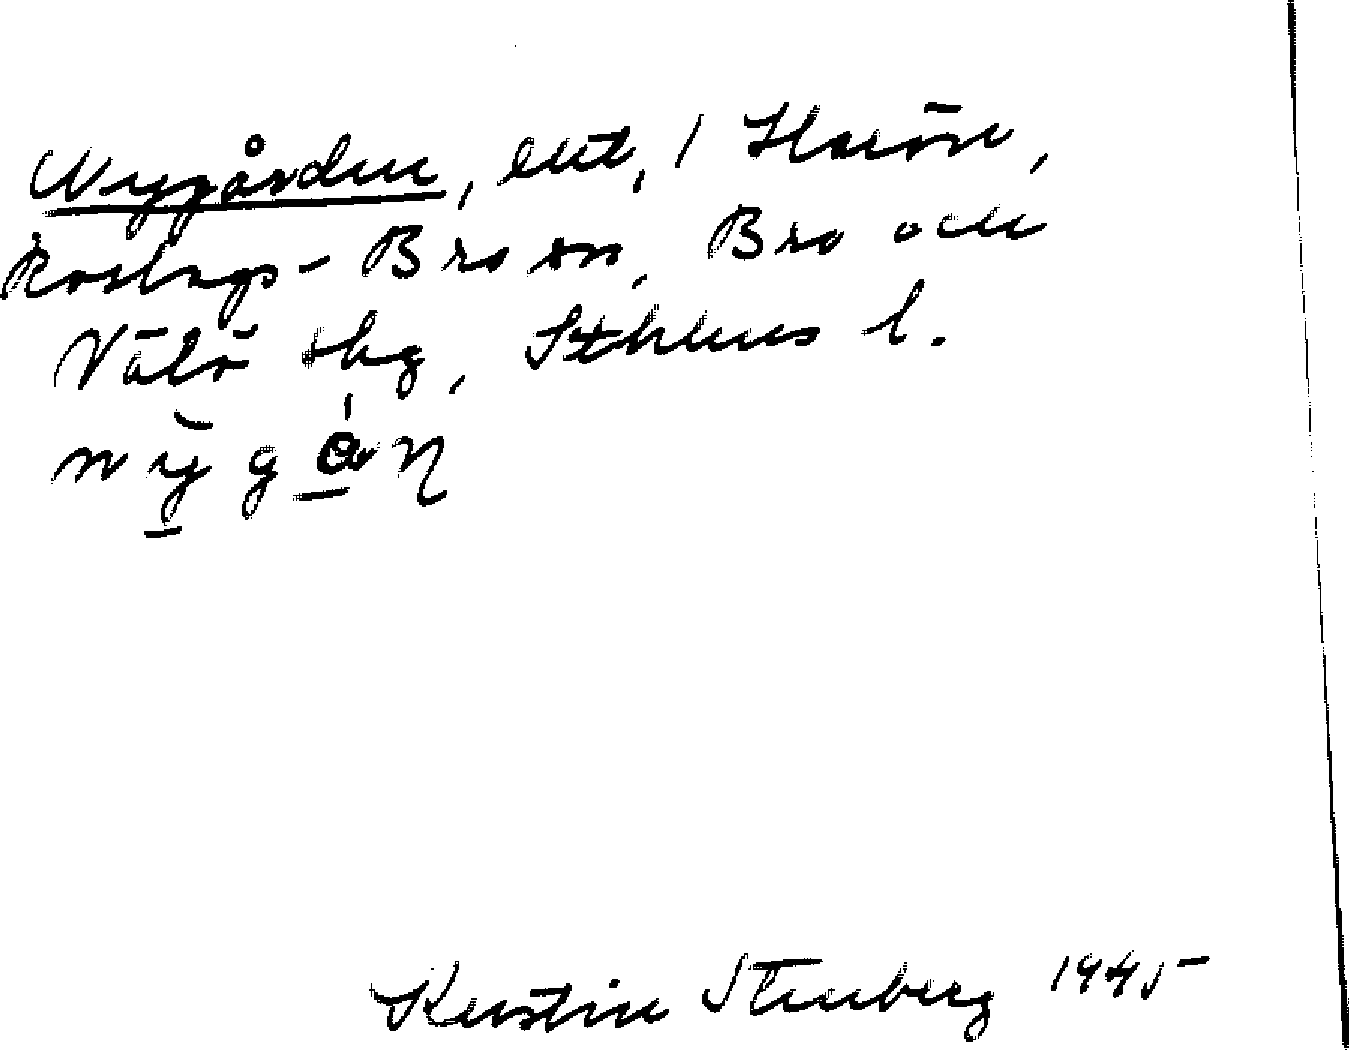 Nygården, lht, i
Roslags-Bro sn, Bro och
Vätö skg, Sthlms l.
Kerstin Stenberg 1945